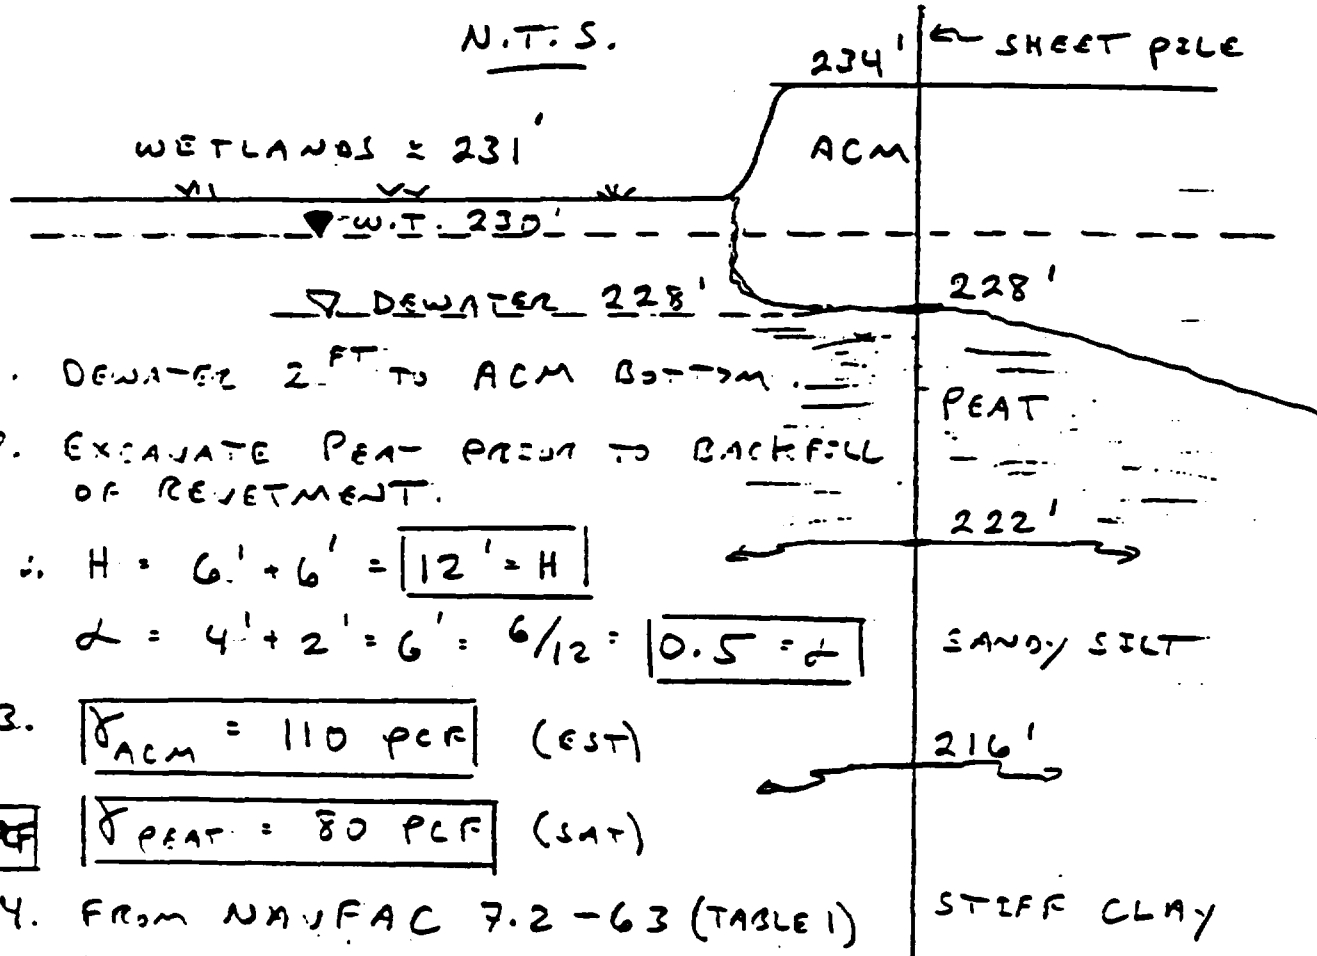 N.T.S.
234' ← SHEET PILE
WETLANDS ≃ 231'
ACM
W.T. 230'
DEWATER 228'
228'
. DEWATER 2 FT TO ACM BOTTOM.
PEAT
. EXCAVATE PEAT PRIOR TO BACKFILL
OF REVETMENT.
222'
∴ H = 6' + 6' = 12' = H
α = 4' + 2' = 6' = 6/12 = 0.5 = α
SANDY SILT
3. γACM = 110 PCF (EST)
216'
γPEAT = 80 PCF (SAT)
4. FROM NAVFAC 7.2-63 (TABLE 1)
STIFF CLAY